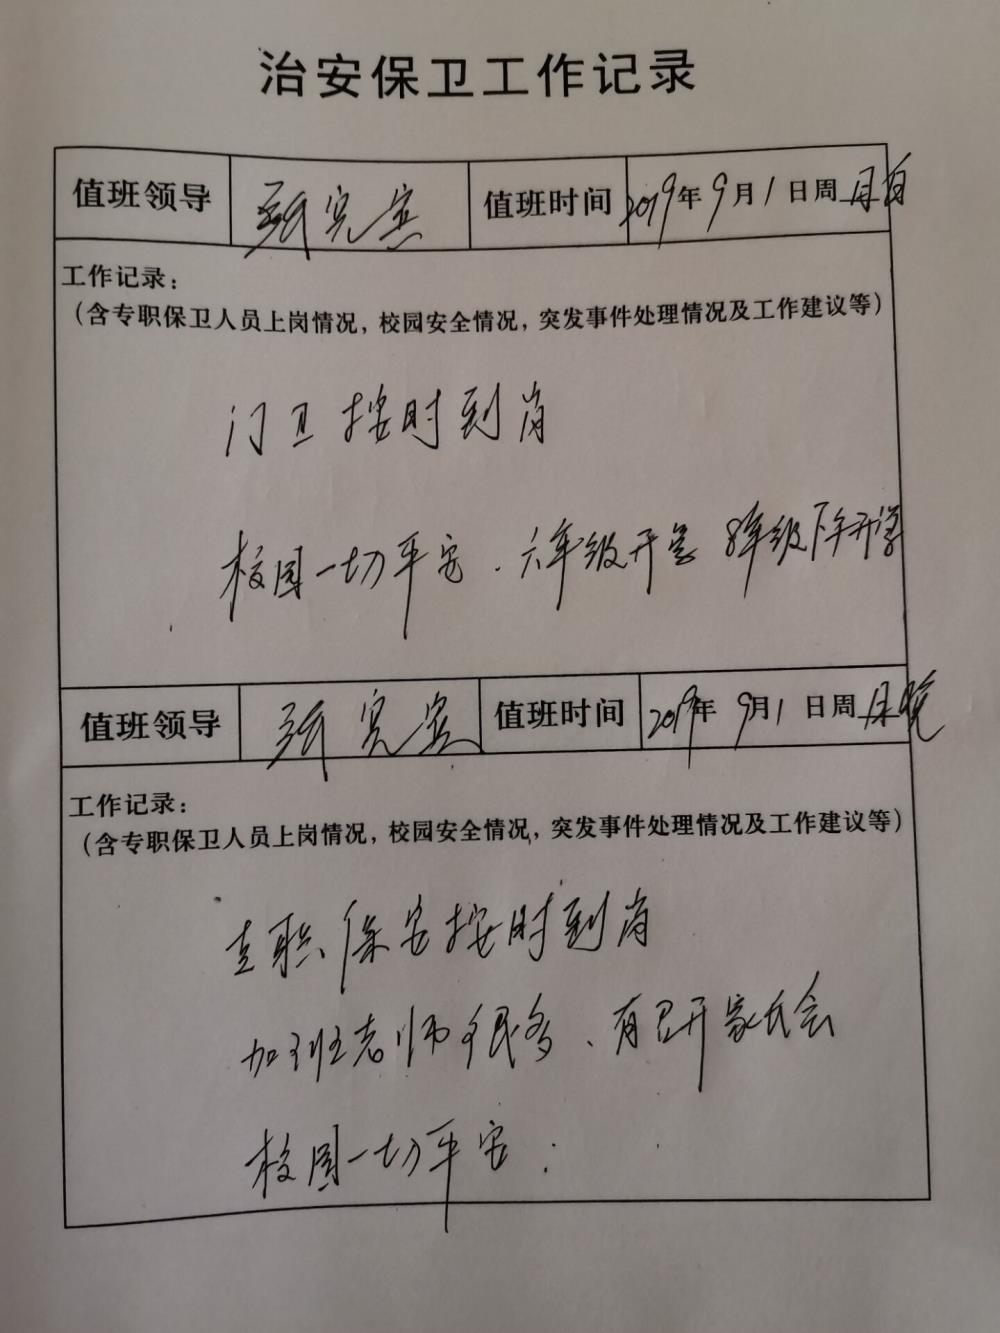 治安保卫工作记录
值班领导 宪宾 值班时间 2019年9月1日周日白
工作记录：
（含专职保卫人员上岗情况，校园安全情况，突发事件处理情况及工作建议等）
门卫按时到岗
校园一切平安．六年级开学 8年级下午开学
值班领导 宪宾 值班时间 2019年9月1日周日晚
工作记录：
（含专职保卫人员上岗情况，校园安全情况，突发事件处理情况及工作建议等）
专职保安按时到岗
加班老师很多、有召开家长会
校园一切平安：